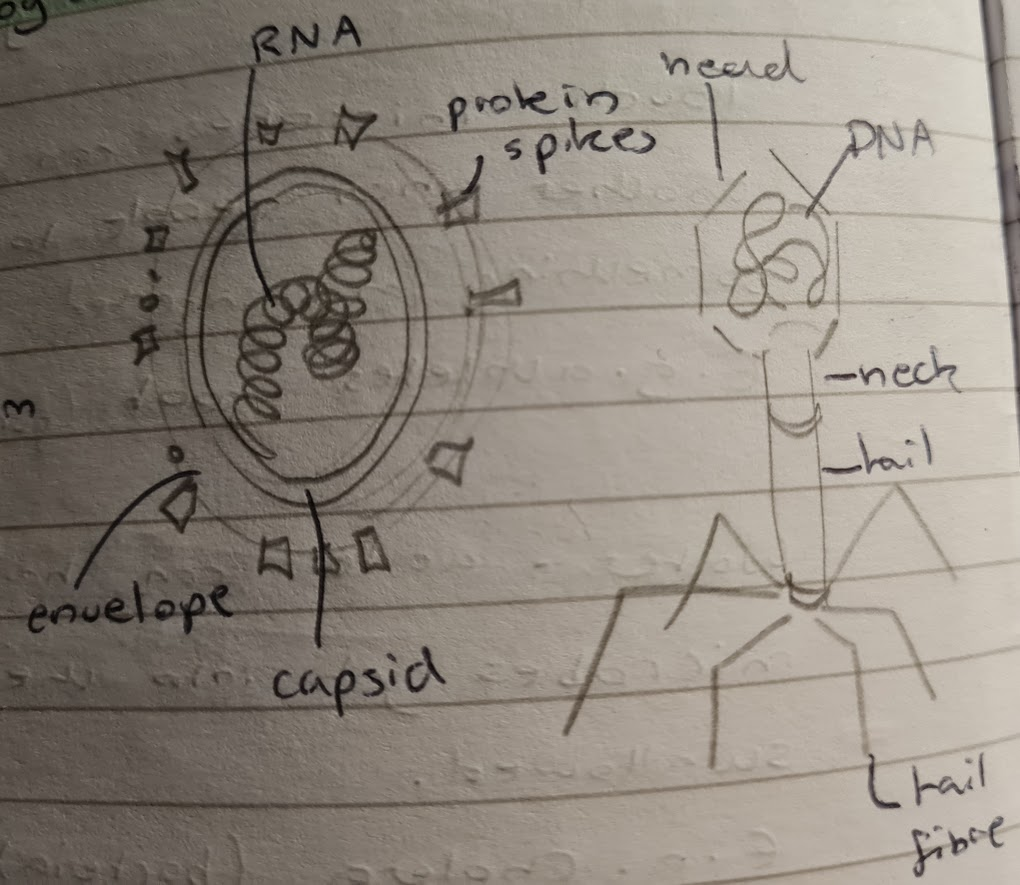 RNA
head
protein
spikes
DNA
neck
m
tail
envelope
capsid
tail
fibre